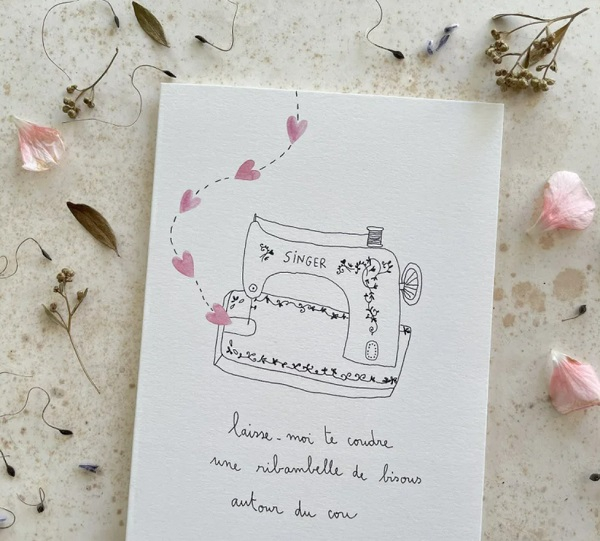 SiNGER
laisse-moi te coudre
une ribambelle de bisous
autour du cou